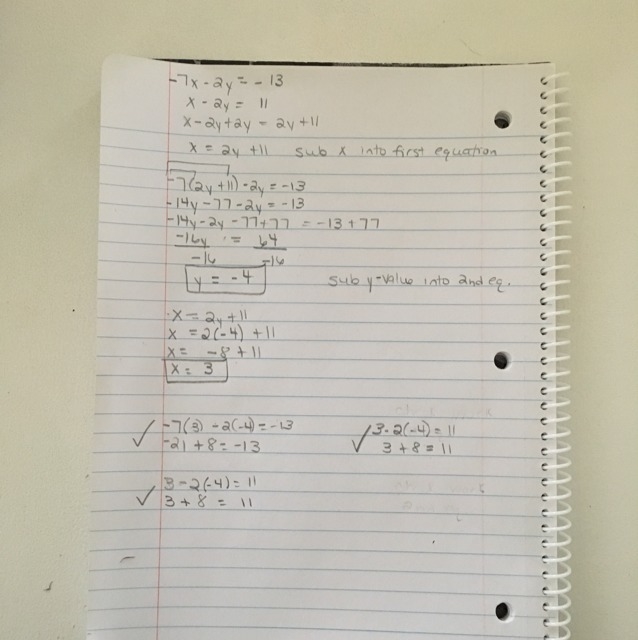 -7x - 2y = -13
x - 2y = 11
x - 2y + 2y = 2y + 11
x = 2y + 11 sub x into first equation
-7(2y + 11) - 2y = -13
-14y - 77 - 2y = -13
-14y - 2y - 77 + 77 = -13 + 77
-16y = 64
-16 -16
y = -4 sub y-value into 2nd eq.
x = 2y + 11
x = 2(-4) + 11
x = -8 + 11
x = 3
✓ -7(3) - 2(-4) = -13 ✓ 3 - 2(-4) = 11
-21 + 8 = -13 3 + 8 = 11
✓ 3 - 2(-4) = 11
3 + 8 = 11